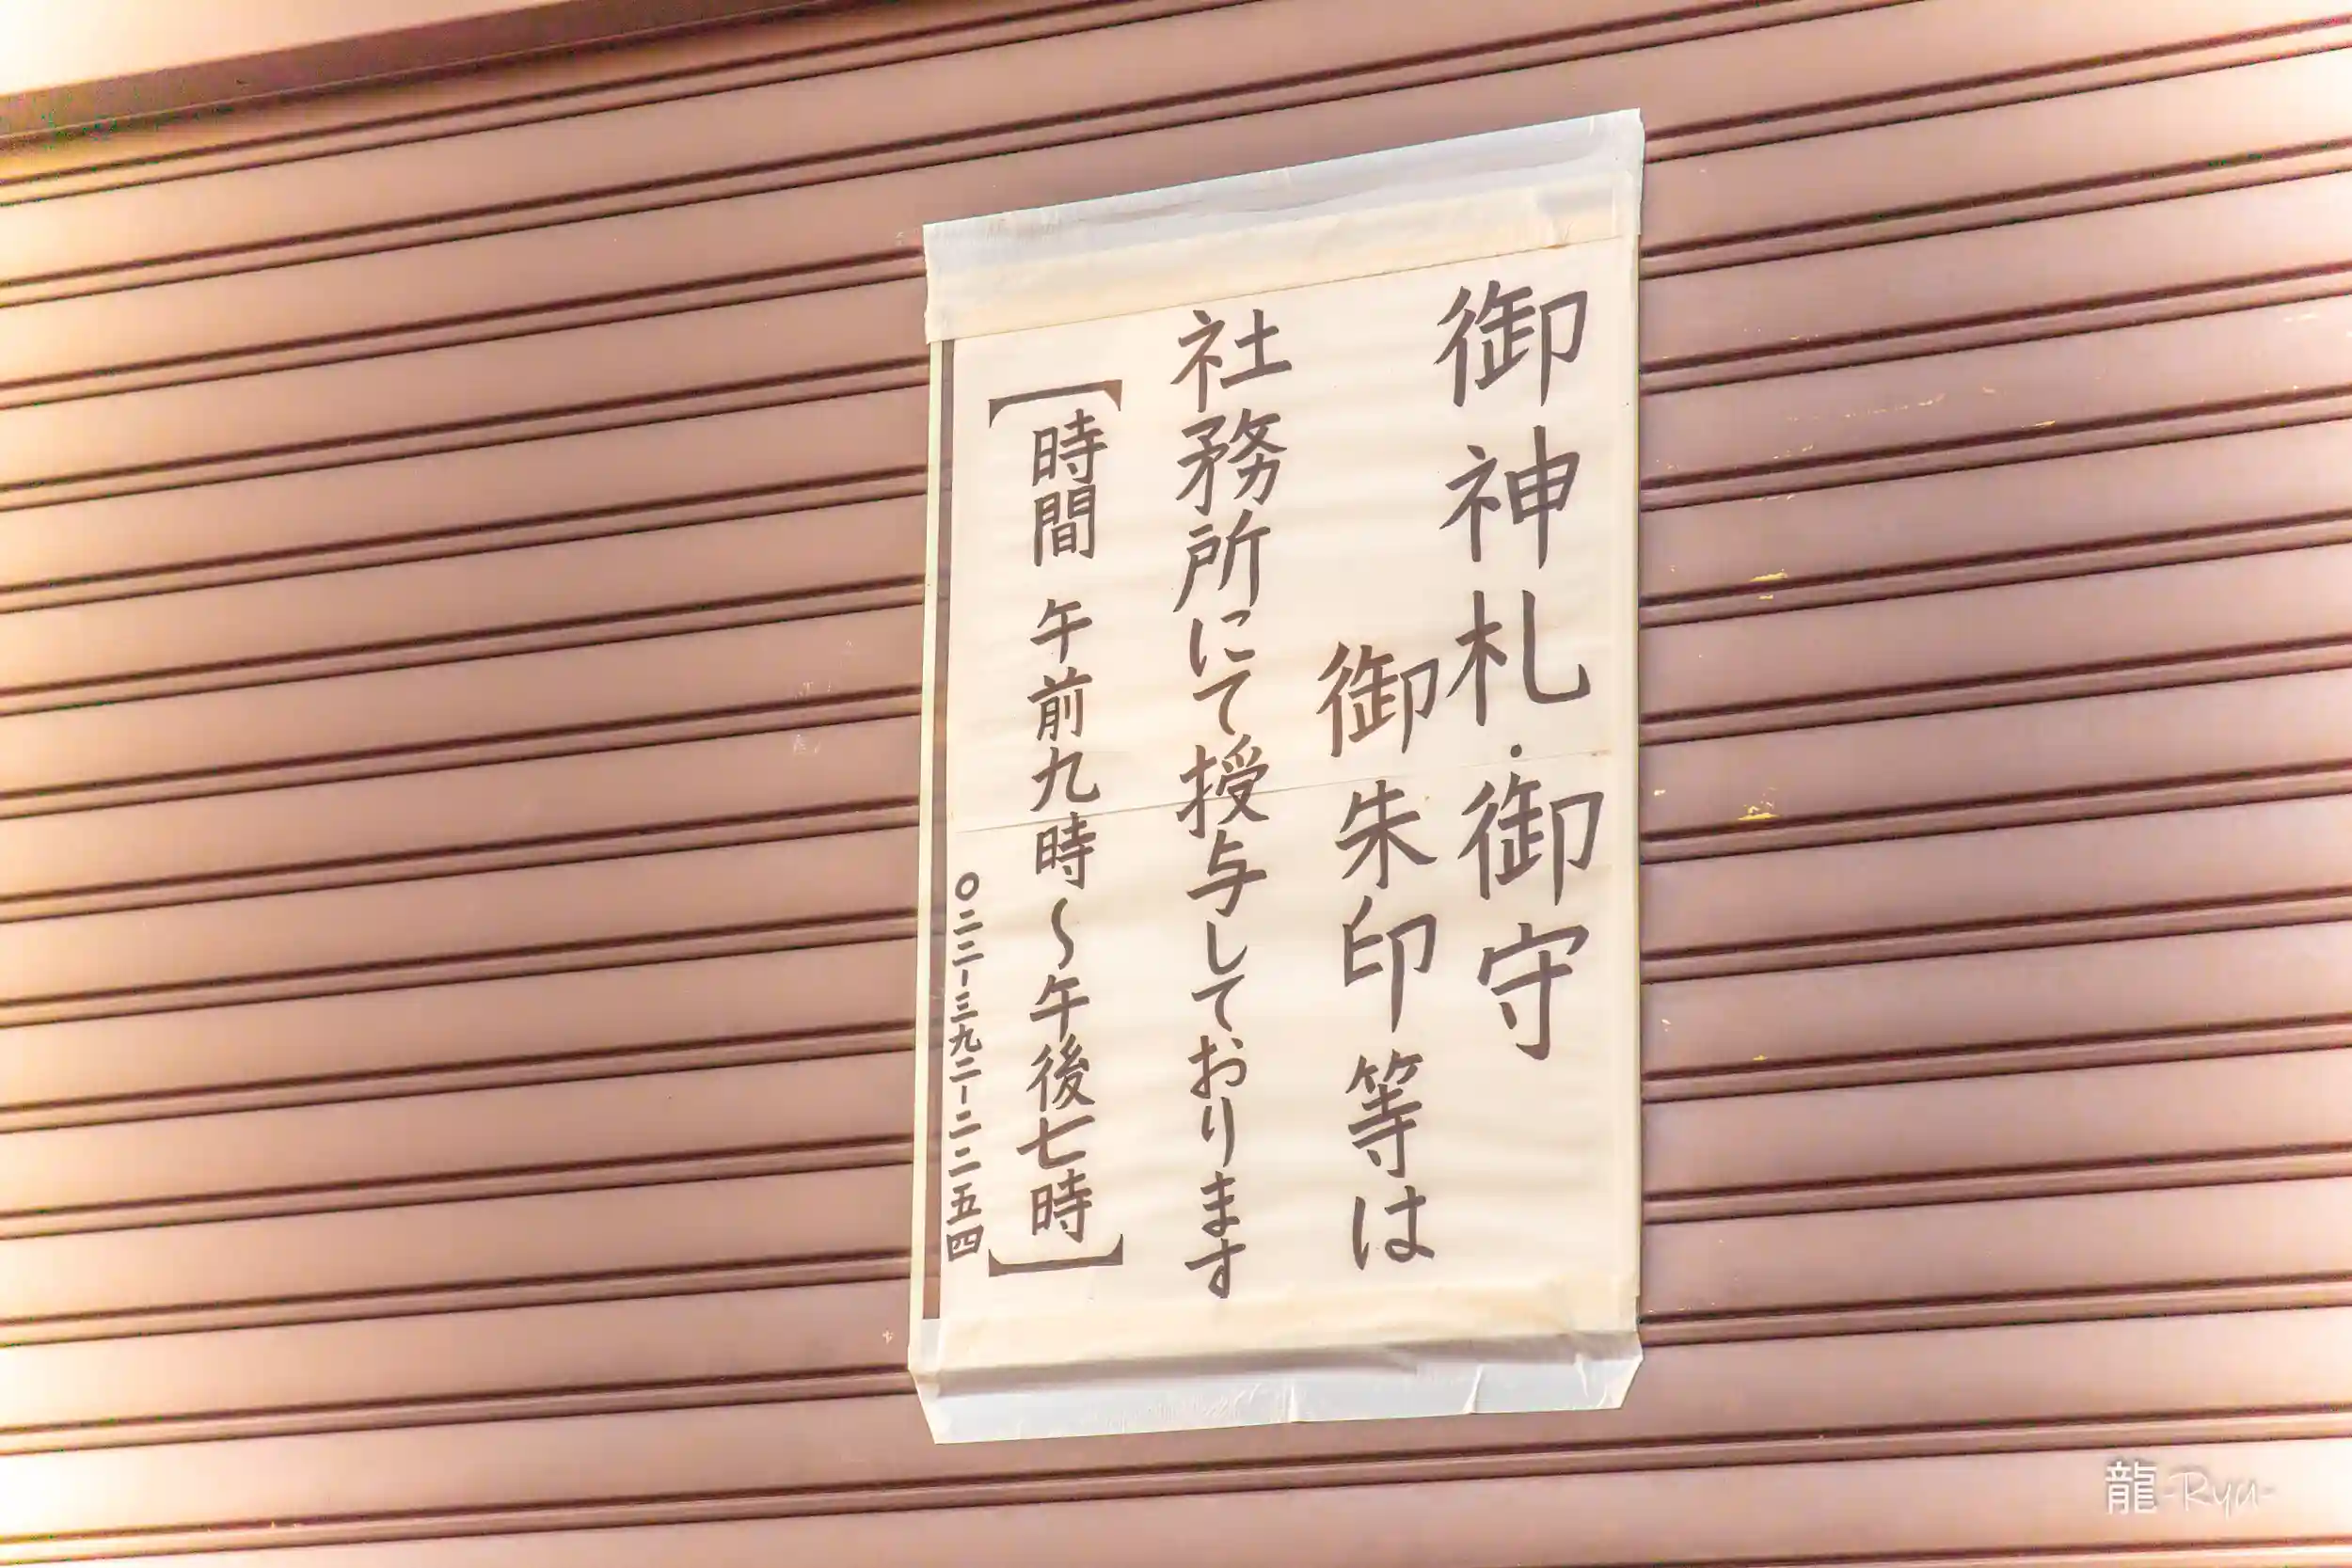 御神札・御守
御朱印等は
社務所にて授与しております
[時間 午前九時〜午後七時]
〇二二-三九二-二二五四
龍-Ryu-